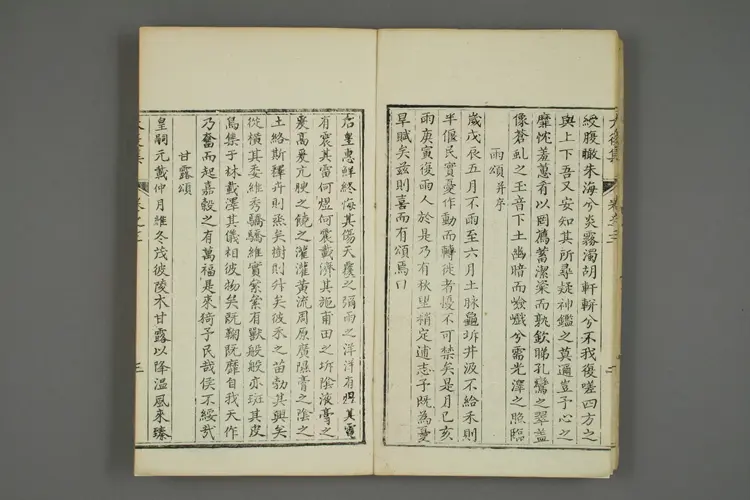 綬腹轍朱海兮炎霧濁胡軒軿兮不我復嗟四方之
與上下吾又安知其所尋疑神鑑之莫適豈予心之
靡忱羞蕙肴以罔薦蓄潔粢而孰歆睇孔鸞之翠蓋
像蒼虬之玉音下土幽暗而嶮巇兮需光澤之照臨
雨頌并序
歲戊辰五月不雨至六月土脉龜坼井汲不給禾則
半偃民實憂作動而轉徙者擾不可禁矣是月己亥
雨庚寅復雨人於是乃有秋望稍定逋志子既為憂
旱賦矣茲則喜而有頌焉曰
右皇惠鮮終悔其傷天虞之彌雨之洋洋有熠其電
有震其雷何熠何震載濟其施甫田之坼陰液膏之
爰高爰亢腴之饒之灌灌黃流周原廣隰膏之陰之
土絡斯釋卉則烝矣樹則升矣彼黍之苗勃其興矣
從橫其委維秀驕驕維實纍纍有獸般般亦斑其皮
鳥集于林載澤其儀相彼物矣既鞠既靡自我天作
乃奮而起嘉穀之有萬福是來猗予民哉侯不綏哉
甘露頌
皇嗣元載仲月維冬茂彼陵木甘露以降溫風來臻
卷之三
三